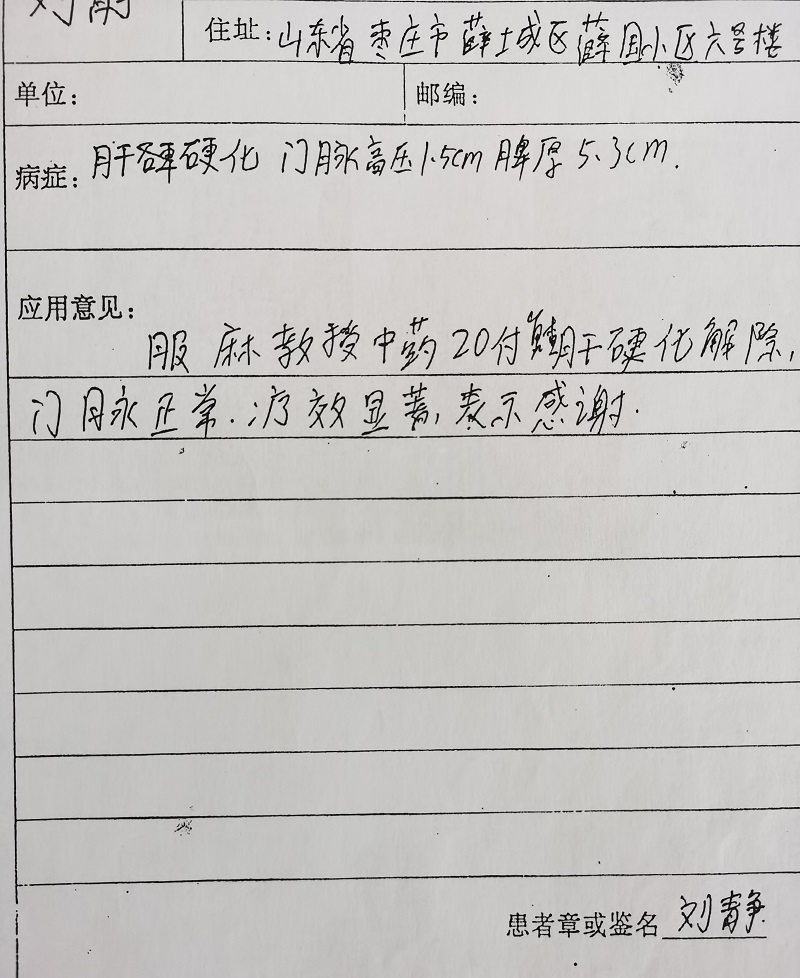 住址:山东省枣庄市薛城区薛国小区六号楼
单位:
邮编:
病症:肝硬化 门脉高压1.5cm 脾厚5.3cm.
应用意见:
服麻教授中药20付 肝硬化解除,
门脉正常.疗效显著,表示感谢.
患者章或鉴名 刘静